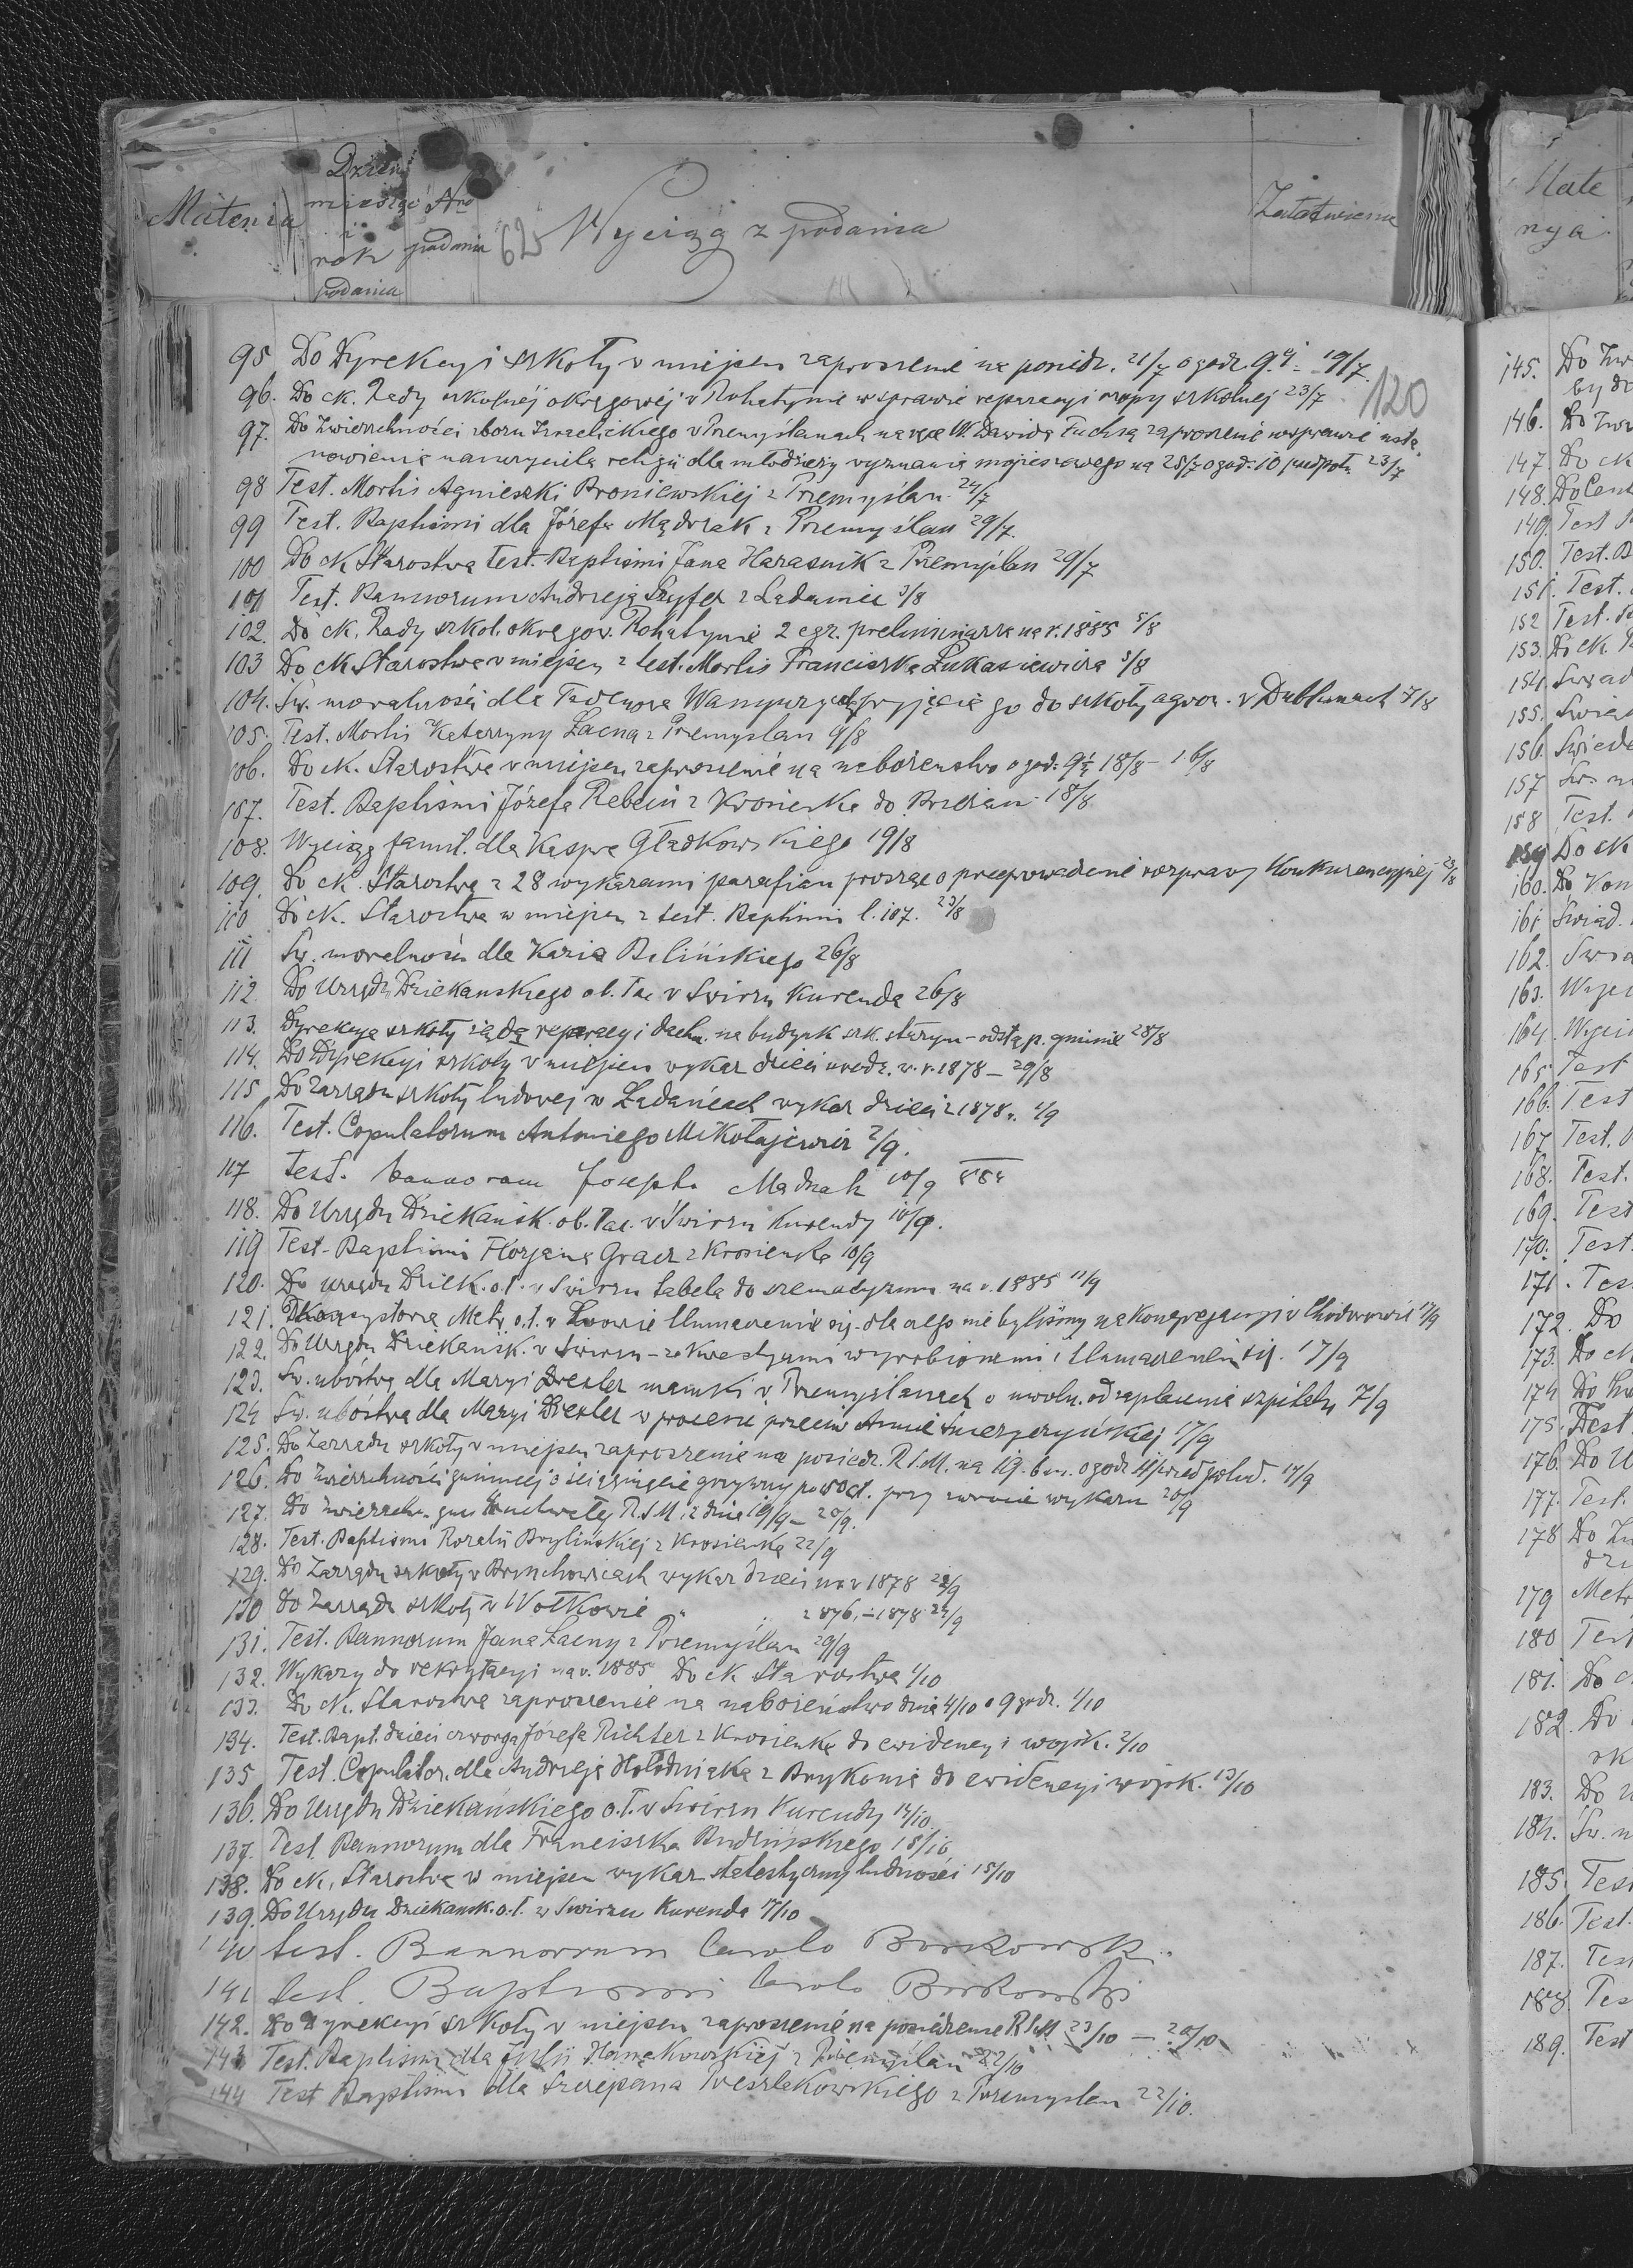 Materia
Dzień
miesiąc
i
rok
podania
Nro
podania
62
Wyciąg z podania
Załatwienie
Mate
rya
120
95 Do Dyrekcyi szkoły w miejscu zaproszenie na poniedz. 21/7 o godz. 9. 19/7.
96. Do ck. Rady szkolnej okręgowej w Rohatynie w sprawie reparacyi mapy szkolnej 23/7
97. Do Zwierzchności zboru Izraelickiego w Przemyślanach na ręce W. Dawida Fuchsa zaproszenie w sprawie usta
nowienia nauczyciela religii dla młodzieży wyznania mojżeszowego na 25/7 o god. 10 przedpołu. 23/7
98 Test. Mortis Agnieszki Broniewskiej z Przemyślan 24/7
99 Test. Baptismi dla Józefa Mądrzak z Przemyślan 29/7.
100 Do ck Starostwa test. Baptismi Jana Harasnik z Przemyślan 29/7
101 Test. Bannorum Andrzeja Szyfer z Ładaniec 3/8
102. Do ck. Rady szkol. okręgow. Rohatynie 2 egz. preliminarza na r. 1885 5/8
103 Do ck Starostwa w miejscu z test. Mortis Franciszka Łukasiewicza 5/8
104. Św. moralności dla Tadeusza przyjęcie go do szkoły agron. w Dublanach 7/8
105. Test. Mortis Katarzyny Łacna z Przemyslan 9/8
106. Do ck. Starostwa w miejscu zaproszenie na nabożeństwo o god. 9½ 18/8 - 16/8
107. Test. Baptismi Józefa z Krosienka do Brzeżan 18/8
108. Wyciąg famil. dla Kaspra Gładkowskiego 19/8
109. Do ck. Starostwa z 28 wykazami parafian prosząc o przeprowadzenie rozprawy Konkurencyjnej 23/8
110 Do ck. Starostwa w miejscu z test. Baptismi l. 107. 23/8
111 Św. moralności dla Kazia Bilińskiego 26/8
112 Do Urzędu Dziekanskiego ob. łac. w Swirzu Kurenda 26/8
113. Dyrekcya szkoły żąda reparacyi dachu na budynk szk. starym - odstąp. gminie 28/8
114. Do Dyrekcyi szkoły w miejscu wykaz dzieci urodz. w. r. 1878 - 29/8
115 Do Zarządu szkoły ludowej w Ładańcach wykaz dzieci z 1878 r. 1/9
116. Test. Copulatorum Antoniego Mikołajewicz 2/9.
117 Test. bannorum Josepho Madrzak 10/9
118. Do Urzędu Dziekańsk. ob. łac. w Świrzu Kurendy 10/9.
119 Test. Baptismi Floryana Gracz z Krosienka 10/9
120. Do urzędu Dziek. o. ł. w Swirzu tabela do szematyzmu na r. 1885 11/9
121. Konsystorza Metr. o. ł. w Lwowie tłumaczenie się dla czego nie byliśmy na kongregacyi w Chodorowie 17/9
122. Do Urzędu Dziekańsk. w Swirzu - z kwestyami wyrobionemi i tłumaczenie się. 17/9
123. Św. ubóstwa dla Maryi Drexler mamki w Przemyślanach o uwoln. od zapłacenia szpitalu 7/9
124 Św. ubóstwa dla Maryi Drexler w procesie przeciw Annie 17/9
125. Do Zarządu szkoły w miejscu zaproszenie na posiedz. R.S.M. na 19. b.m. o godz 11 przed połud. 17/9
126. Do Zwierzchności gminnej o ściągnięcie grzywny po 50 ct. przy zwrocie wykazu 20/9
127. Do Zwierzchn. gm. uchwałę R.S.M. z dnia 19/9 - 20/9.
128. Test. Baptismi Rozalii Brylińskiej z Krosienka 22/9
129. Do Zarządu szkoły w Brzuchowicach wykaz dzieci na r 1878 22/9
130 Do Zarządu szkoły w Wołkowie " " z 876, - 1878 22/9
131. Test. Bannorum Jana Łacny z Przemyślan 29/9
132. Wykazy do rekrutacyi na r. 1885 Do ck Starostwa 1/10
133. Do ck. Starostwa zaproszenie na nabożeństwo dnia 4/10 o 9 godz. 1/10
134. Test. Bapt. dzieci czworga Józefa Richter z Krosienka do ewidencyi wojsk. 2/10
135 Test. Copulator. dla Andrzeja Hołodniaka z Brykonia do ewidencyi wojsk. 13/10
136. Do Urzędu Dziekańskiego o. ł. w Swirzu Kurendy 14/10
137. Test. Bannorum dla Franciszka Budzińskiego 15/10
138. Do ck. Starostwa w miejscu wykaz statestyczny ludności 15/10
139. Do Urzędu Dziekansk. o. ł. w Swirzu Kurenda 17/10
140 test. Bannorum Carolo Borkowski.
141 test. Baptismi Carolo Borkowski
142. Do Dyrekcyi szkoły w miejscu zaproszenie na posiedzenie R S M 23/10 - 20/10
143 Test. Baptismi dla Julii z Przemyślan 22/10
144 Test Baptismi dla Szczepana z Przemyslan 22/10.
145. Do Zw
by do
146. Do Zw
147. Do ck
148. Do Cent
149. Test
150. Test. B
151. Test.
152 Test.
153. Do ck.
154. Swiad
155. Swiad
156. Swiade
157 Sw. m
158 Test.
159 Do ck
160. Do Kon
161 Swiad.
162. Swia
163. Wyci
164. Wyci
165. Test
166. Test
167. Test.
168. Test.
169. Test
170. Test.
171. Tes
172. Do
173. Do ck
174 Do
175. Test
176. Do U
177. Test.
178 Do Zw
179 Metr
180 Test
181. Do c
182. Do
183. Do U
184. Św. m
185. Test
186. Test.
187. Test
188. Tes
189. Test